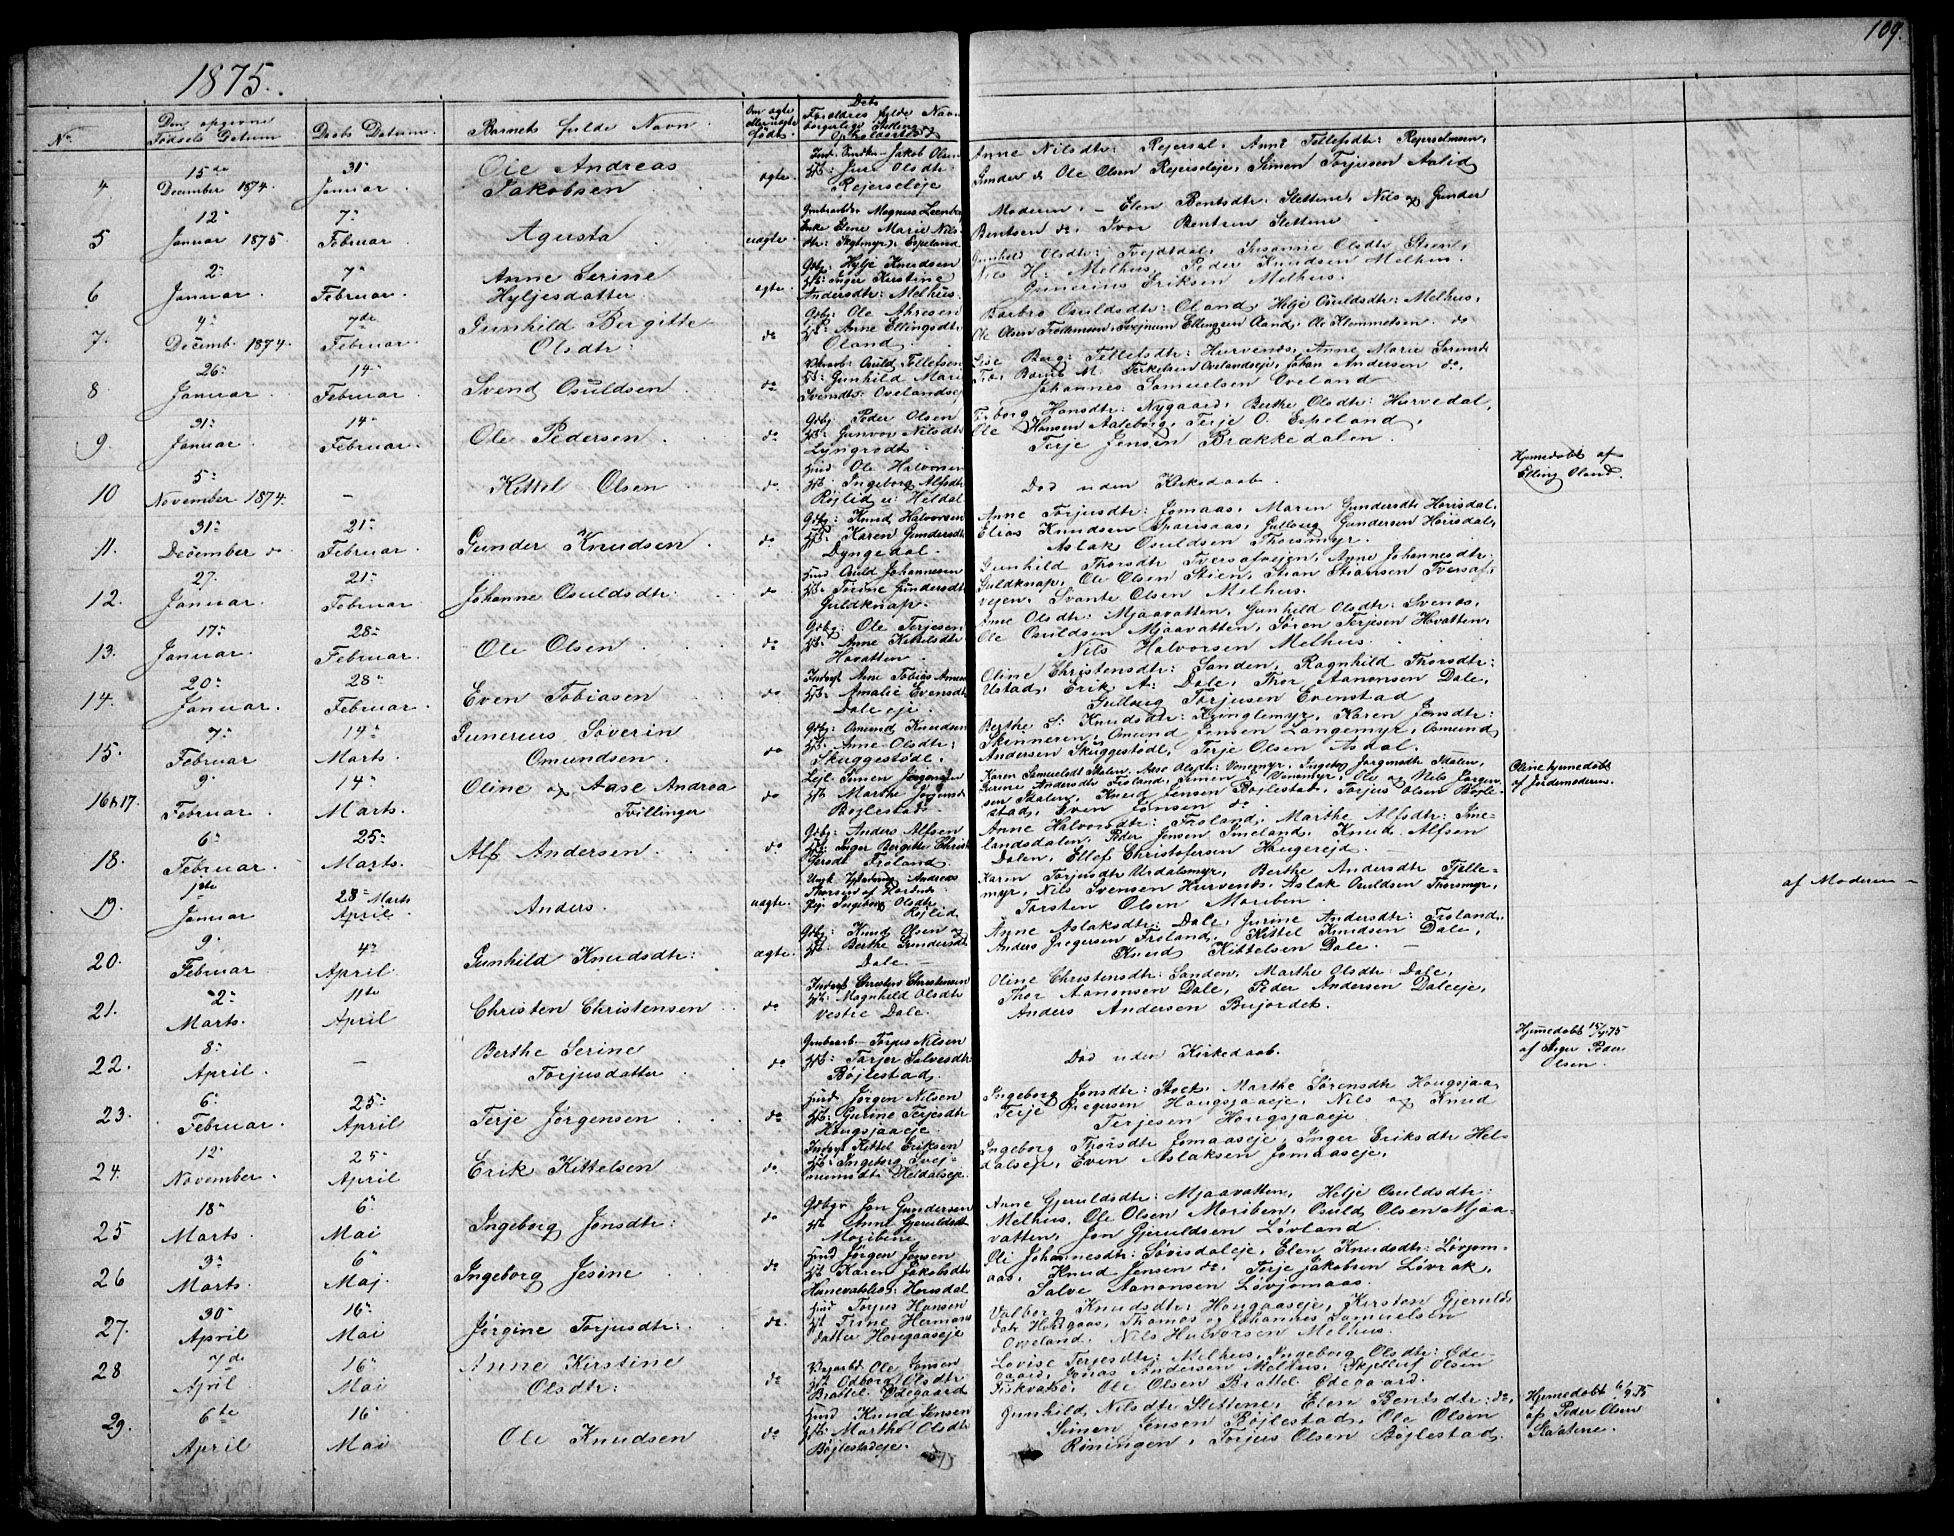 109.
1875.
No
Den opgivne
Fødsels Datum
Daabs Datum.
Barnets fulde Navn.
Om ægte
eller uægte
født.
Dets
Forældres fulde Navn
borgerlige Stilling
og Opholdssted
4
15de
December 1874.
31
Januar.
Ole Andreas
Jakobsen
ægte.
Jakob Olsen
Olsdtr
Rejerseløje
Anne Nilsdtr: Rejersøl, Anne Tellefsdtr: Rejerselmoen,
Gunder & Ole Olsen Rejerseløje, Simen Torjusen Aalid
5
12
Januar 1875.
7
Februar.
Agusta
uægte
Magnus
Enke Elene Marie Nils
dtr: Espeland
Moderen. — Elen Bentsdtr: Slettene, Nils og Gunder
Bentsen do, Ivar Bentsen Slettene
6
2
Januar.
7
Februar.
Anne Serine
Hyljesdatter
ægte.
Gbg: Hylje Knudsen
Inger Kirstine
Andersdtr: Melhus.
Gunhild Olsdtr: Tvejtdal, Susanne Olsdtr Stien,
Nils H: Melhus, Peder Knudsen Melhus.
Gunerius Eriksen Melhus.
7.
4
Decemb. 1874.
7de
Februar.
Gunhild Bergitte
Olsdtr:
do
Gbg: Ole
Anne Ellingsdtr
Oland
Barbro Osuldsdtr: Oland, Helje Osuldsdtr: Melhus,
Ole Olsen Svejnum Ellingsen Oland, Ole Klemmetsen do
8
26
Januar.
14
Februar.
Svend Osuldsen
do
Osuld Tellefsen
Gunhild Marie
Svendtr: Ovelandseje
Tellefsdtr: Hurvenes, Anne Marie Sørensdr
Terkelsen Ovelandseje, Johan Andersen do,
Johannes Samuelsen Oveland
9.
31
Januar.
14
Februar.
Ole Pedersen
do
Gbg. Peder Olsen
Gunvor Nilsdtr
Lyngrodt
Hansdtr: Nygaard, Berthe Olsdtr: Hurvedal,
Ole Hansen Aaleborg, Terje O. Espeland,
Terje Jensen Brækkedalen.
10
5
November 1874.
—
Kittel Olsen
do.
Hmd: Ole Halvorsen
Ingeborg Alfsdtr
Røjlid u: Heldal
Død uden Kirkedaab.
Hjemedøbt af
Elling Oland.
11.
31
December do
21
Februar.
Gunder Knudsen
do
Gbg: Knud Halvorsen
Karen Gundersdtr
Dyngedal
Anne Torjusdtr: Jomaas, Maren Gundersdtr Hørisdal,
Elias Knudsen Gullaug Gundersen Hørisdal,
Aslak Osuldsen Thorsmyr.
12.
27.
Januar.
21
Februar.
Johanne Osuldsdtr:
do
Hmd: Osuld Johannesen
Torine Gundersdtr
Guldknap.
Gunhild Thorsdtr Tversafvejen, Anne Johannesdtr:
Guldknap, Ole Olsen Stien, Stian Stiansen Tversaf-
vejen. Svante Olsen Melhus.
13.
17
Januar.
28
Februar.
Ole Olsen
do
Gbg: Ole Terjesen
Anne Kittilsdtr
Høvatten
Anne Olsdtr: Mjaavatten, Gunhild Olsdtr: Svenes,
Ole Osuldsen Mjaavatten, Søron Terjesen Høvatten,
Nils Halvorsen Melhus.
14.
20
Januar.
28
Februar.
Even Tobiasen
do
Amalie Evensdtr
Daleeje.
Oline Christensdtr: Sanden, Ragnhild Thorsdtr:
Ustad, Erik A: Dale, Thor Aanonsen Dale,
Gullaug Torjusen Evenstad
15
7
Februar
14
Marts.
Gunereus Søverin
Omundsen
do
Gbg: Omund Knudsen
Anne Olsdtr:
Skuggestøde.
Berthe S: Knudsdtr: Karen Jensdtr:
Omund Jensen Langemyr, Osmund
Andersen Skuggestøde, Terje Olsen Asdal.
16 & 17.
9.
Februar
14
Marts.
Oline og Aase Andrea
Tvillinger
do
Lejl. Simen Jørgensen
Marthe
Bøjlestad
Karen Ingeborg Jørgensdtr
Froland,
Knud Jensen Bøjlestad, Torjus Olsen Bøjle-
stad, Even Jensen do
Oline hjemedøbt
af Jordemoderen.
18.
6
Februar.
25
Marts.
Alf Andersen.
do
Gbg: Anders Alfsen
Inger Bergitte
Froland.
Anne Halvorsdtr: Froland, Marthe Alfsdtr: Sme-
landsdalen, Peder Jensen Smeland, Knud Alfsen
Dalen, Ellef Christofersen Haugereid.
19.
1ste
Januar
28 Marts
April
Anders.
uægte.
Andreas
Ingeborg Olsdtr
Røjlid
Karen Torjusdtr Berthe Andersdtr Fjelle-
myr, Nils Svensen Hurvenes, Aslak Osuldsen Thorsmyr,
Torsten Olsen Moriben.
af Moderen —
20.
9.
Februar
4
April
Gunhild Knudsdtr:
ægte.
Gbg: Knud Olsen og
Berthe Gundersdtr
Dale. —
Anne Aslaksdtr: Dale, Jurine Andersdtr: Froland,
Anders Gregersen Froland, Kittel Knudsen Dale,
Knud Kittelsen Dale. —
21.
2
Marts.
11te
April
Christen Christensen
do
Christen Christensen
Magnhild Olsdtr
Vestre Dale.
Oline Christensdtr: Sanden, Marthe Olsdtr: Dale,
Thor Aanonsen Dale, Peder Andersen Daleeje,
Anders Andersen Bujordet.
22.
8
April.
—
Berthe Serine
Torjusdatter
do
Torjus Nilsen
Salvesdtr:
Bøjlestad.
Død uden Kirkedaab.
Hjemedøbt 15/4 75
af Peder
Olsen.
23.
6
Februar.
25
April
Terje Jørgensen
do
Hmd: Jørgen Nilsen
Gurine Terjesdtr
Hougsjaaeje.
Ingeborg Jonsdtr: Stock, Marthe Sørensdtr Hougsjaa
Terje Gregersen Hougsjaaeje, Nils og Knud
Terjesen Hougsjaaeje.
24.
12
November.
25
April
Erik Kittelsen
do.
Kittel Eriksen
Ingeborg Svej-
numsdtr Heldalseje.
Ingeborg Thorsdtr Jomaaseje, Inger Eriksdtr Hel-
dalseje, Even Aslaksen Jomaaseje.
25
18
Marts.
6
Mai
Ingeborg Jonsdtr:
do
Gbgr Jon Gundersen
Anne Gjeruldsdtr
Moribene.
Anne Gjeruldsdtr: Mjaavatten, Helje Osuldsdtr:
Melhus, Ole Olsen Moriben, Osuld Olsen Mjaa-
vatten, Jon Gjeruldsen Løvland.
26
3
Marts.
6
Maj.
Ingeborg Jesine
do
Hmd Jørgen Jensen
Karen Jakobsdtr
Hørisdal
Johannesdtr: Elen Knudsdtr: Løvjom-
aas, Knud Jensen do, Terje Jakobsen Løvrak,
Salve Aanonsen Løvjomaas.
27.
30
April
16
Mai
Jørgine Torjusdtr:
do.
Hmd Torjus Hansen
Trine Hermans
datter Hougaaseje
Valborg Knudsdtr: Hougaaseje, Kirsten Gjerulds
datr Hougaas, Thomas og Johannes Samuelsen
Oveland, Nils Halvorsen Melhus.
28
7de
April
16
Mai
Anne Kirstine
Olsdtr:
do
Ole Jensen
Odborg Olsdtr
Brattel. Ødegaard
Lovise Terjesdtr: Melhus, Ingeborg Olsdtr: Øde-
gaard, Jonas Andersen Melhus, Olsen
Fiskvatn, Ole Olsen Brattel. Ødegaard.
29.
6te
April
16
Mai
Ole Knudsen
do
Hmd. Knud Jensen
Marthe Olsdtr
Bøjlestadeje.
Gunhild Nilsdtr Slettene, Elen Bentsdtr: do,
Simen Jensen Bøjlestad, Ole Olsen
Røningen, Torjus Olsen Bøjlestad.
Hjemedøbt 6/4 75
af Peder Olsen
Slaatene.